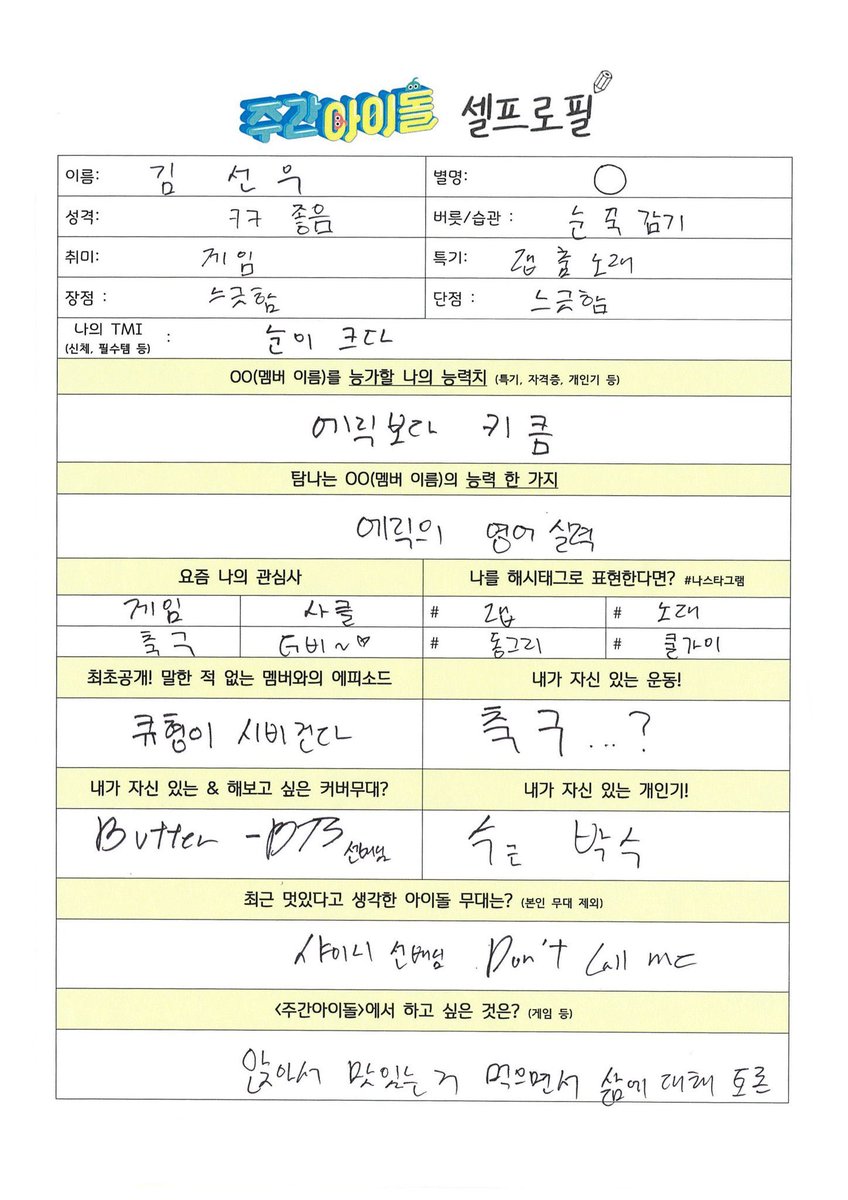 주간아이돌 셀프로필
이름: 김 선 우 별명: ○
성격: ㅋㅋ 좋음 버릇/습관 : 눈 꼭 감기
취미: 게임 특기: 랩 춤 노래
장점 : 느긋함 단점 : 느긋함
나의 TMI
(신체, 필수템 등) : 눈이 크다
OO(멤버 이름)를 능가할 나의 능력치 (특기, 자격증, 개인기 등)
에릭보다 키 큼
탐나는 OO(멤버 이름)의 능력 한 가지
에릭의 영어 실력
요즘 나의 관심사 나를 해시태그로 표현한다면? #나스타그램
게임 사클 # 랩 # 노래
축구 더비~♡ # 동그리 # 쿨가이
최초공개! 말한 적 없는 멤버와의 에피소드 내가 자신 있는 운동!
큐형이 시비건다 축구...?
내가 자신 있는 & 해보고 싶은 커버무대? 내가 자신 있는 개인기!
Butter - BTS 선배님 수근 박수
최근 멋있다고 생각한 아이돌 무대는? (본인 무대 제외)
샤이니 선배님 Don't Call me
<주간아이돌>에서 하고 싶은 것은? (게임 등)
앉아서 맛있는 거 먹으면서 삶에 대해 토론